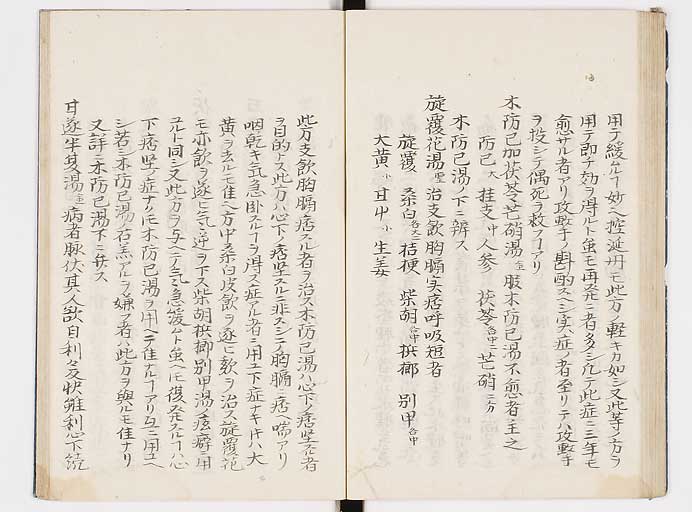 用テ緩ルヿ妙ヘ控涎丹モ此方ノ軽キカ如シ又此等ノ方ヲ
用テ即チ効ヲ得ルト虽モ再発スル者多シ凢テ此症ニ三年モ
愈サル者アリ攻撃ノ斟酌スヘシ実症ノ者至リテハ攻撃
ヲ投シテ偶死ヲ救フヿアリ
木防已加茯苓芒硝湯 服木防已湯不愈者主之
防已大 桂支中 人参 茯苓各中 芒硝
木防已湯ノ下ニ辨ス
旋覆花湯 治支飲胸膈実痞呼吸短者
旋覆 桑白各中 桔梗 柴胡各中 梹榔 別甲各中
大黄小 甘艸小 生姜
此方支飲胸膈痞スル者ヲ治ス木防已湯ハ心下ノ痞堅スル者
ヲ目的トス此方ハ心下ノ痞堅スルニ非スシテ胸膈ニ痞ヘ喘アリ
咽乾キ気急卧スルヿヲ得ス症アル者ニ用ユ下症ナキ片ハ大
黄ヲ去ルモ佳ヘ方中桑白皮飲ヲ逐ヒ欬ヲ治ス旋覆花
モ亦飲ヲ逐ヒ気逆ヲ下ス柴胡梹榔別甲湯ノ痃癖ニ用
ユルト同シ又此方ヲ与ヘテ気急緩ムト虽ヘモ復発スルヿハ心
下痞堅ノ症ナリモ木防已湯ヲ用ヘテ佳ナルヿアリ互ニ用ユヘ
シ若シ木防已湯ノ石羔アルヲ嫌フ者ハ此方ヲ與ルモ佳ナリ
又詳ニ木防已湯下ニ弁ス
甘遂半夏湯 病者脉伏其人欲自利々反快雖利心下続